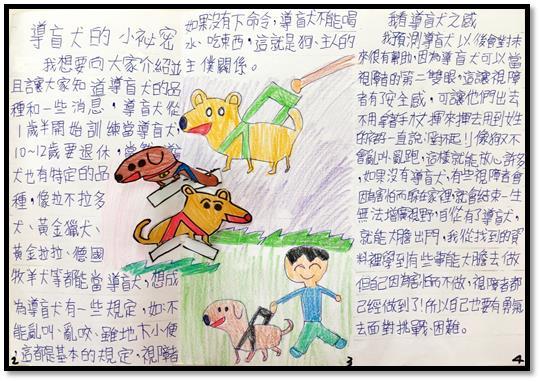 導盲犬的小祕密
我想要向大家介紹並
且讓大家知道導盲犬的品
種和一些消息,導盲犬從
1歲半開始訓練當導盲犬,
10~12歲要退休,當
犬也有特定的品
種,像拉不拉多
犬、黃金獵犬、
黃金拉拉、德國
牧羊犬等都能當導盲犬,想成
為導盲犬有一些規定,如:不
能亂叫、亂咬、隨地大小便
,這都是基本的規定,視障者
2
如果沒有下命令,導盲犬不能喝
水、吃東西,這就是狗、主人的
主僕關係。
3
讀導盲犬之感
我預測導盲犬以後會對未
來很有幫助,因為導盲犬可以當
視障者的第二雙眼,這讓視障
者有安全感,可讓他們出去
不用拿著手杖揮來揮去用到姓
一直說:對不起!像狗又不
會亂叫、亂跑,這樣就能放心許多
,如果沒有導盲犬,有些視障者會
因為害怕而躲在家裡,就會結束一生
無法增廣視野,自從有了導盲犬,
就能大膽出門,我從找到的資
料裡學到有些事能大膽去做
但自己因為害怕而不做,視障者都
已經做到了!所以自己也要有勇氣
去面對挑戰、困難。
4